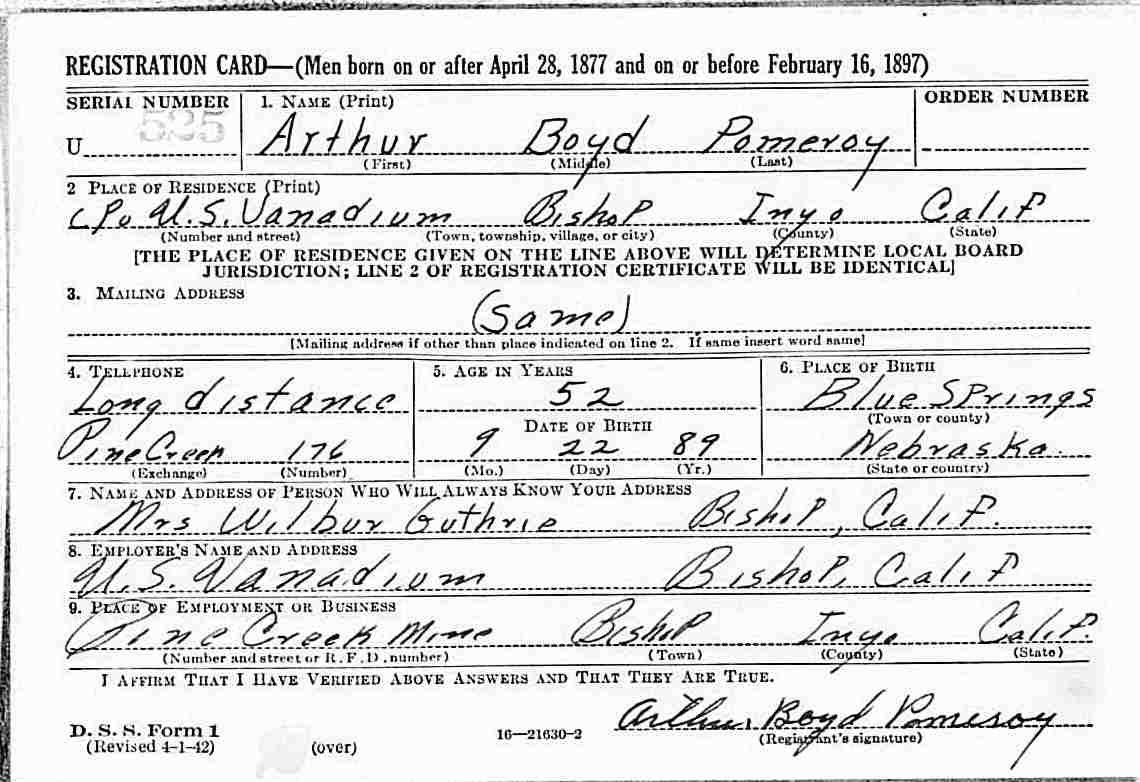 REGISTRATION CARD—(Men born on or after April 28, 1877 and on or before February 16, 1897)
SERIAL NUMBER 1. NAME (Print) ORDER NUMBER
U 525 Arthur Boyd Pomeroy
(First) (Middle) (Last)
2 PLACE OF RESIDENCE (Print)
c/o U.S. Vanadium Bishop Inyo Calif
(Number and street) (Town, township, village, or city) (County) (State)
[THE PLACE OF RESIDENCE GIVEN ON THE LINE ABOVE WILL DETERMINE LOCAL BOARD
JURISDICTION; LINE 2 OF REGISTRATION CERTIFICATE WILL BE IDENTICAL]
3. MAILING ADDRESS
(Same)
[Mailing address if other than place indicated on line 2. If same insert word same]
4. TELEPHONE 5. AGE IN YEARS 6. PLACE OF BIRTH
Long distance 52 Blue Springs
DATE OF BIRTH (Town or county)
Pine Creek 176 9 22 89 Nebraska.
(Exchange) (Number) (Mo.) (Day) (Yr.) (State or country)
7. NAME AND ADDRESS OF PERSON WHO WILL ALWAYS KNOW YOUR ADDRESS
Mrs Wilbur Guthrie Bishop, Calif.
8. EMPLOYER'S NAME AND ADDRESS
U.S. Vanadium Bishop, Calif
9. PLACE OF EMPLOYMENT OR BUSINESS
Pine Creek Mine Bishop Inyo Calif.
(Number and street or R. F. D. number) (Town) (County) (State)
I AFFIRM THAT I HAVE VERIFIED ABOVE ANSWERS AND THAT THEY ARE TRUE.
Arthur Boyd Pomeroy
D. S. S. Form 1
(Revised 4-1-42) (over) 16—21630-2 (Registrant's signature)